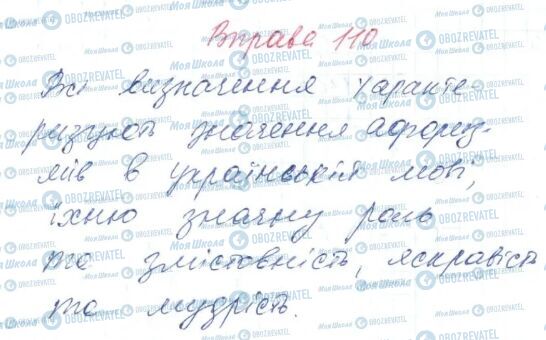 Вправа 110
Всі визначення характе-
ризують значення афориз-
мів в українській мові,
їхню значну роль
та змістовність, яскравість
та мудрість.